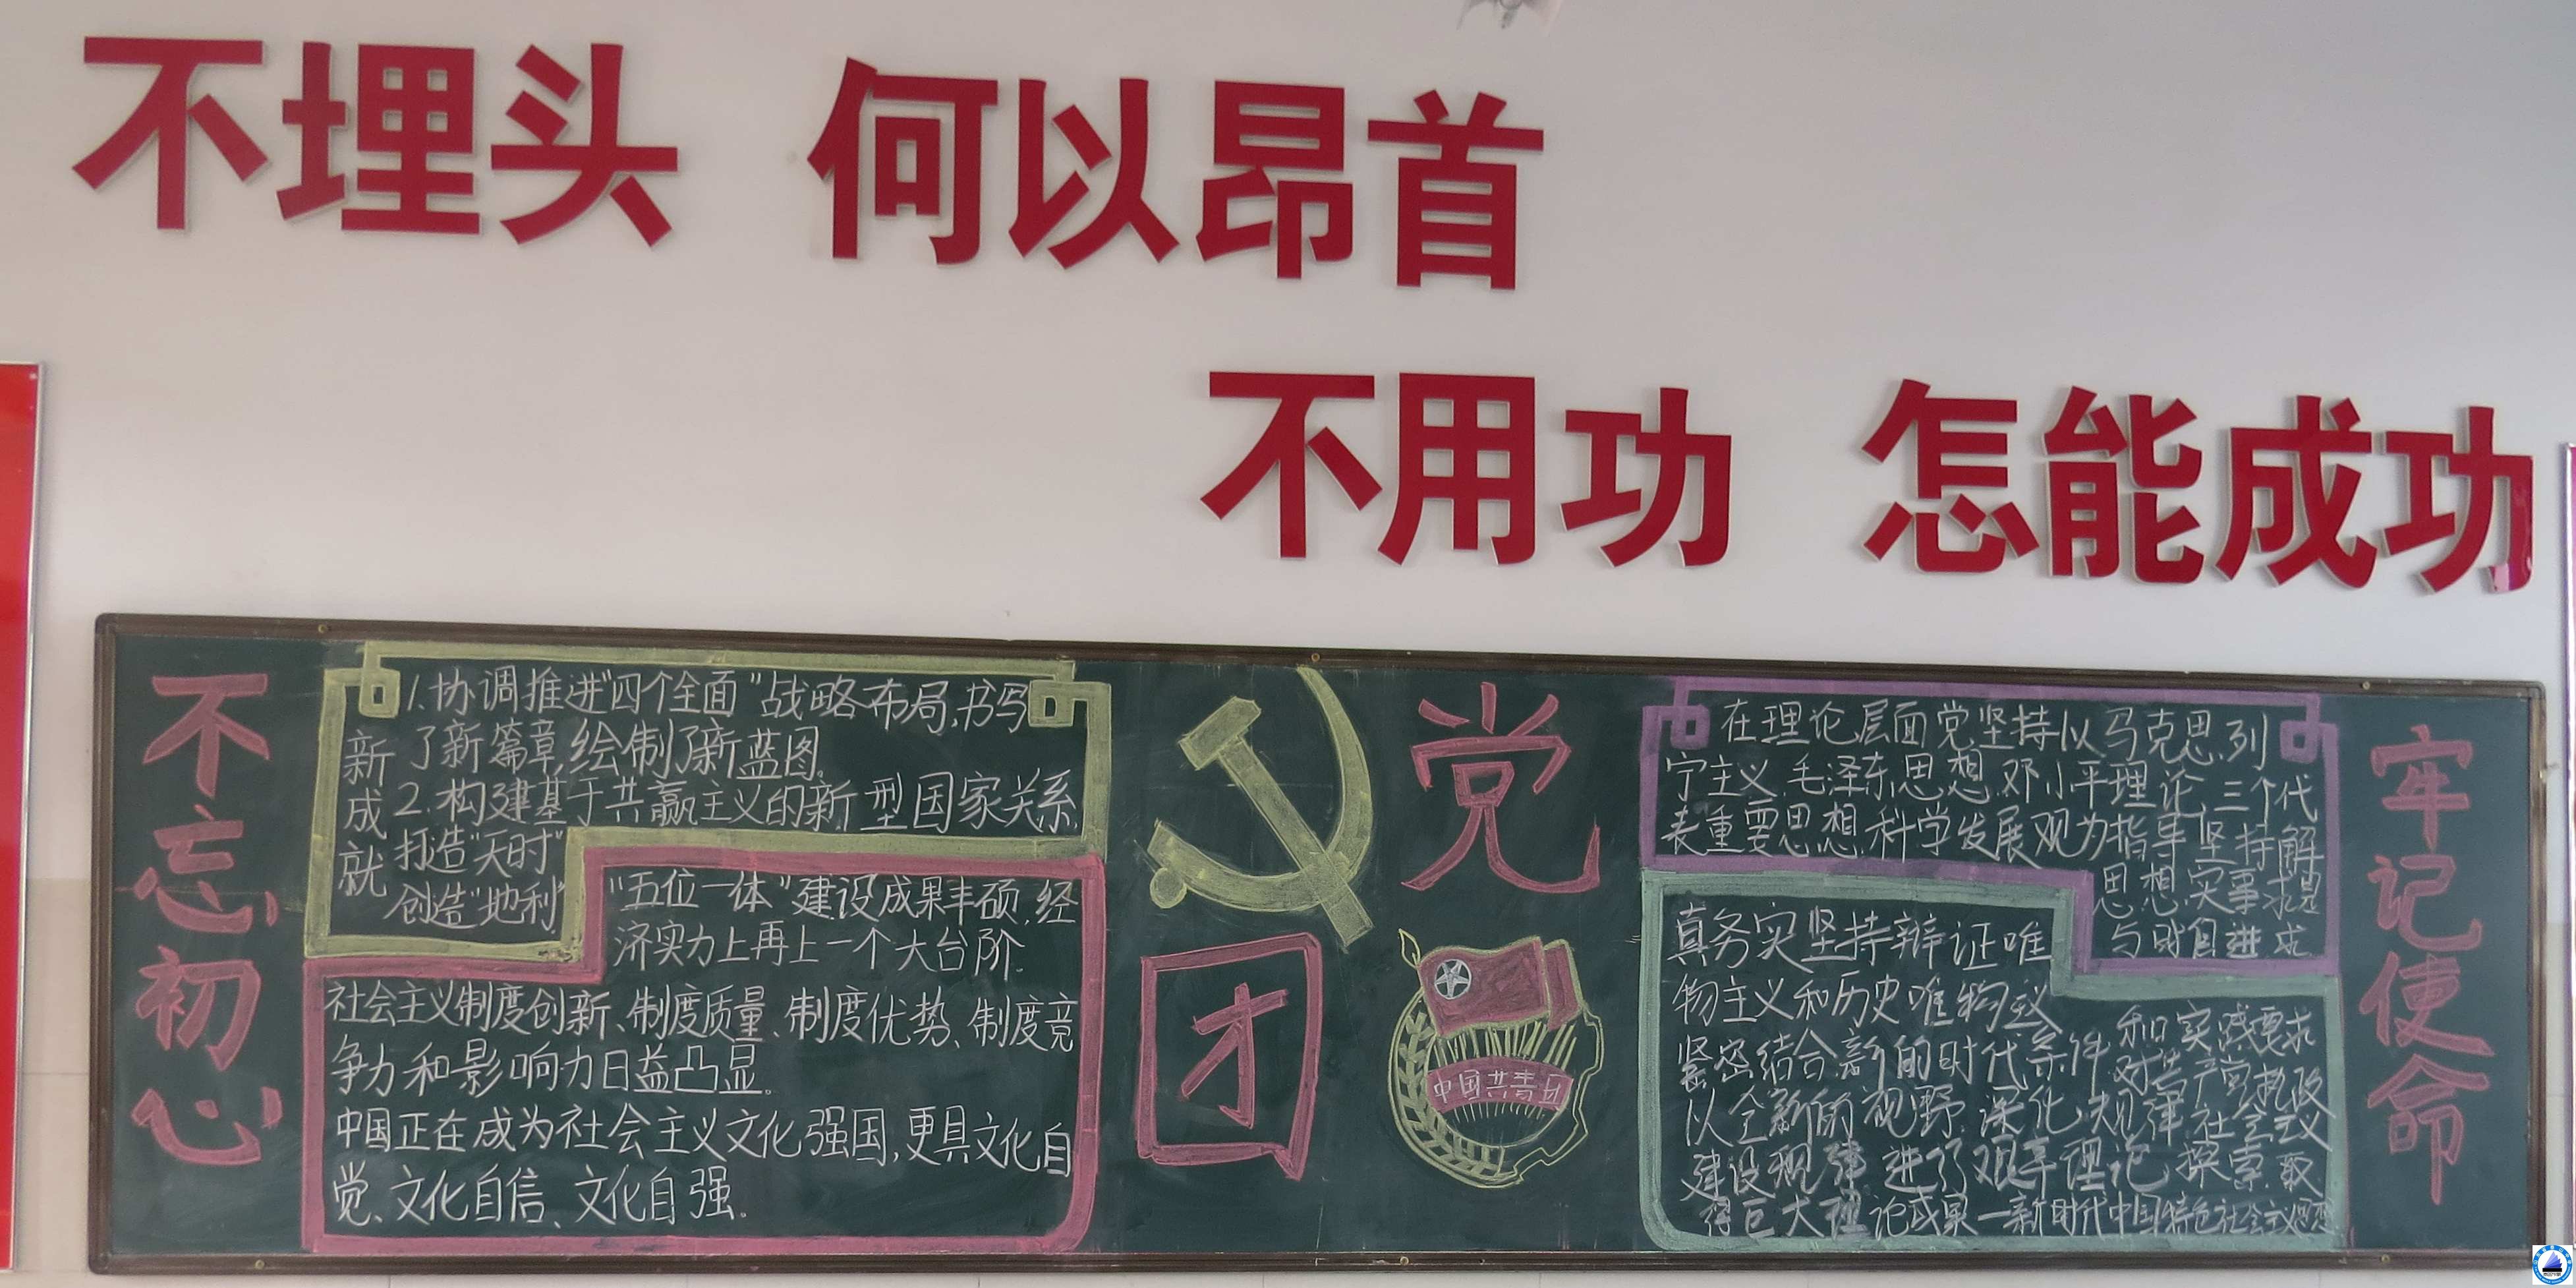 不埋头 何以昂首
不用功 怎能成功
不忘初心
新成就
1.协调推进"四个全面"战略布局,书写
了新篇章,绘制了新蓝图。
2.构建基于共赢主义的新型国家关系
打造"天时"
创造"地利"
"五位一体"建设成果丰硕,经
济实力上再上一个大台阶.
社会主义制度创新、制度质量、制度优势、制度竞
争力和影响力日益凸显。
中国正在成为社会主义文化强国,更具文化自
觉、文化自信、文化自强。
党
团
中国共青团
在理论层面党坚持以马克思.列
宁主义.毛泽东思想.邓小平理论,三个代
表重要思想.科学发展观为指导.坚持解
思想.实事求是
与时俱进.求
真务实坚持辩证唯
物主义和历史唯物主义
紧密结合新的时代条件和实践要求
以全新的视野.深化对共产党执政
规律社会主义
建设规律进了艰辛理论探索.取
得巨大理论成果一新时代中国特色社会主义思想
牢记使命